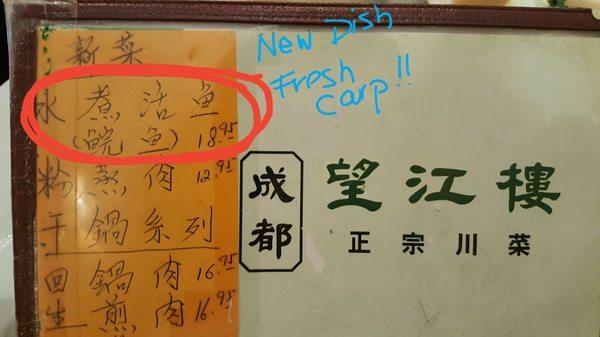 新菜
水煮活鱼
(鯇鱼) 18.95
粉蒸肉 12.95
干鍋系列
回鍋肉 16.95
生煎肉 16.95
New Dish
Fresh
Carp!!
成都
望江樓
正宗川菜